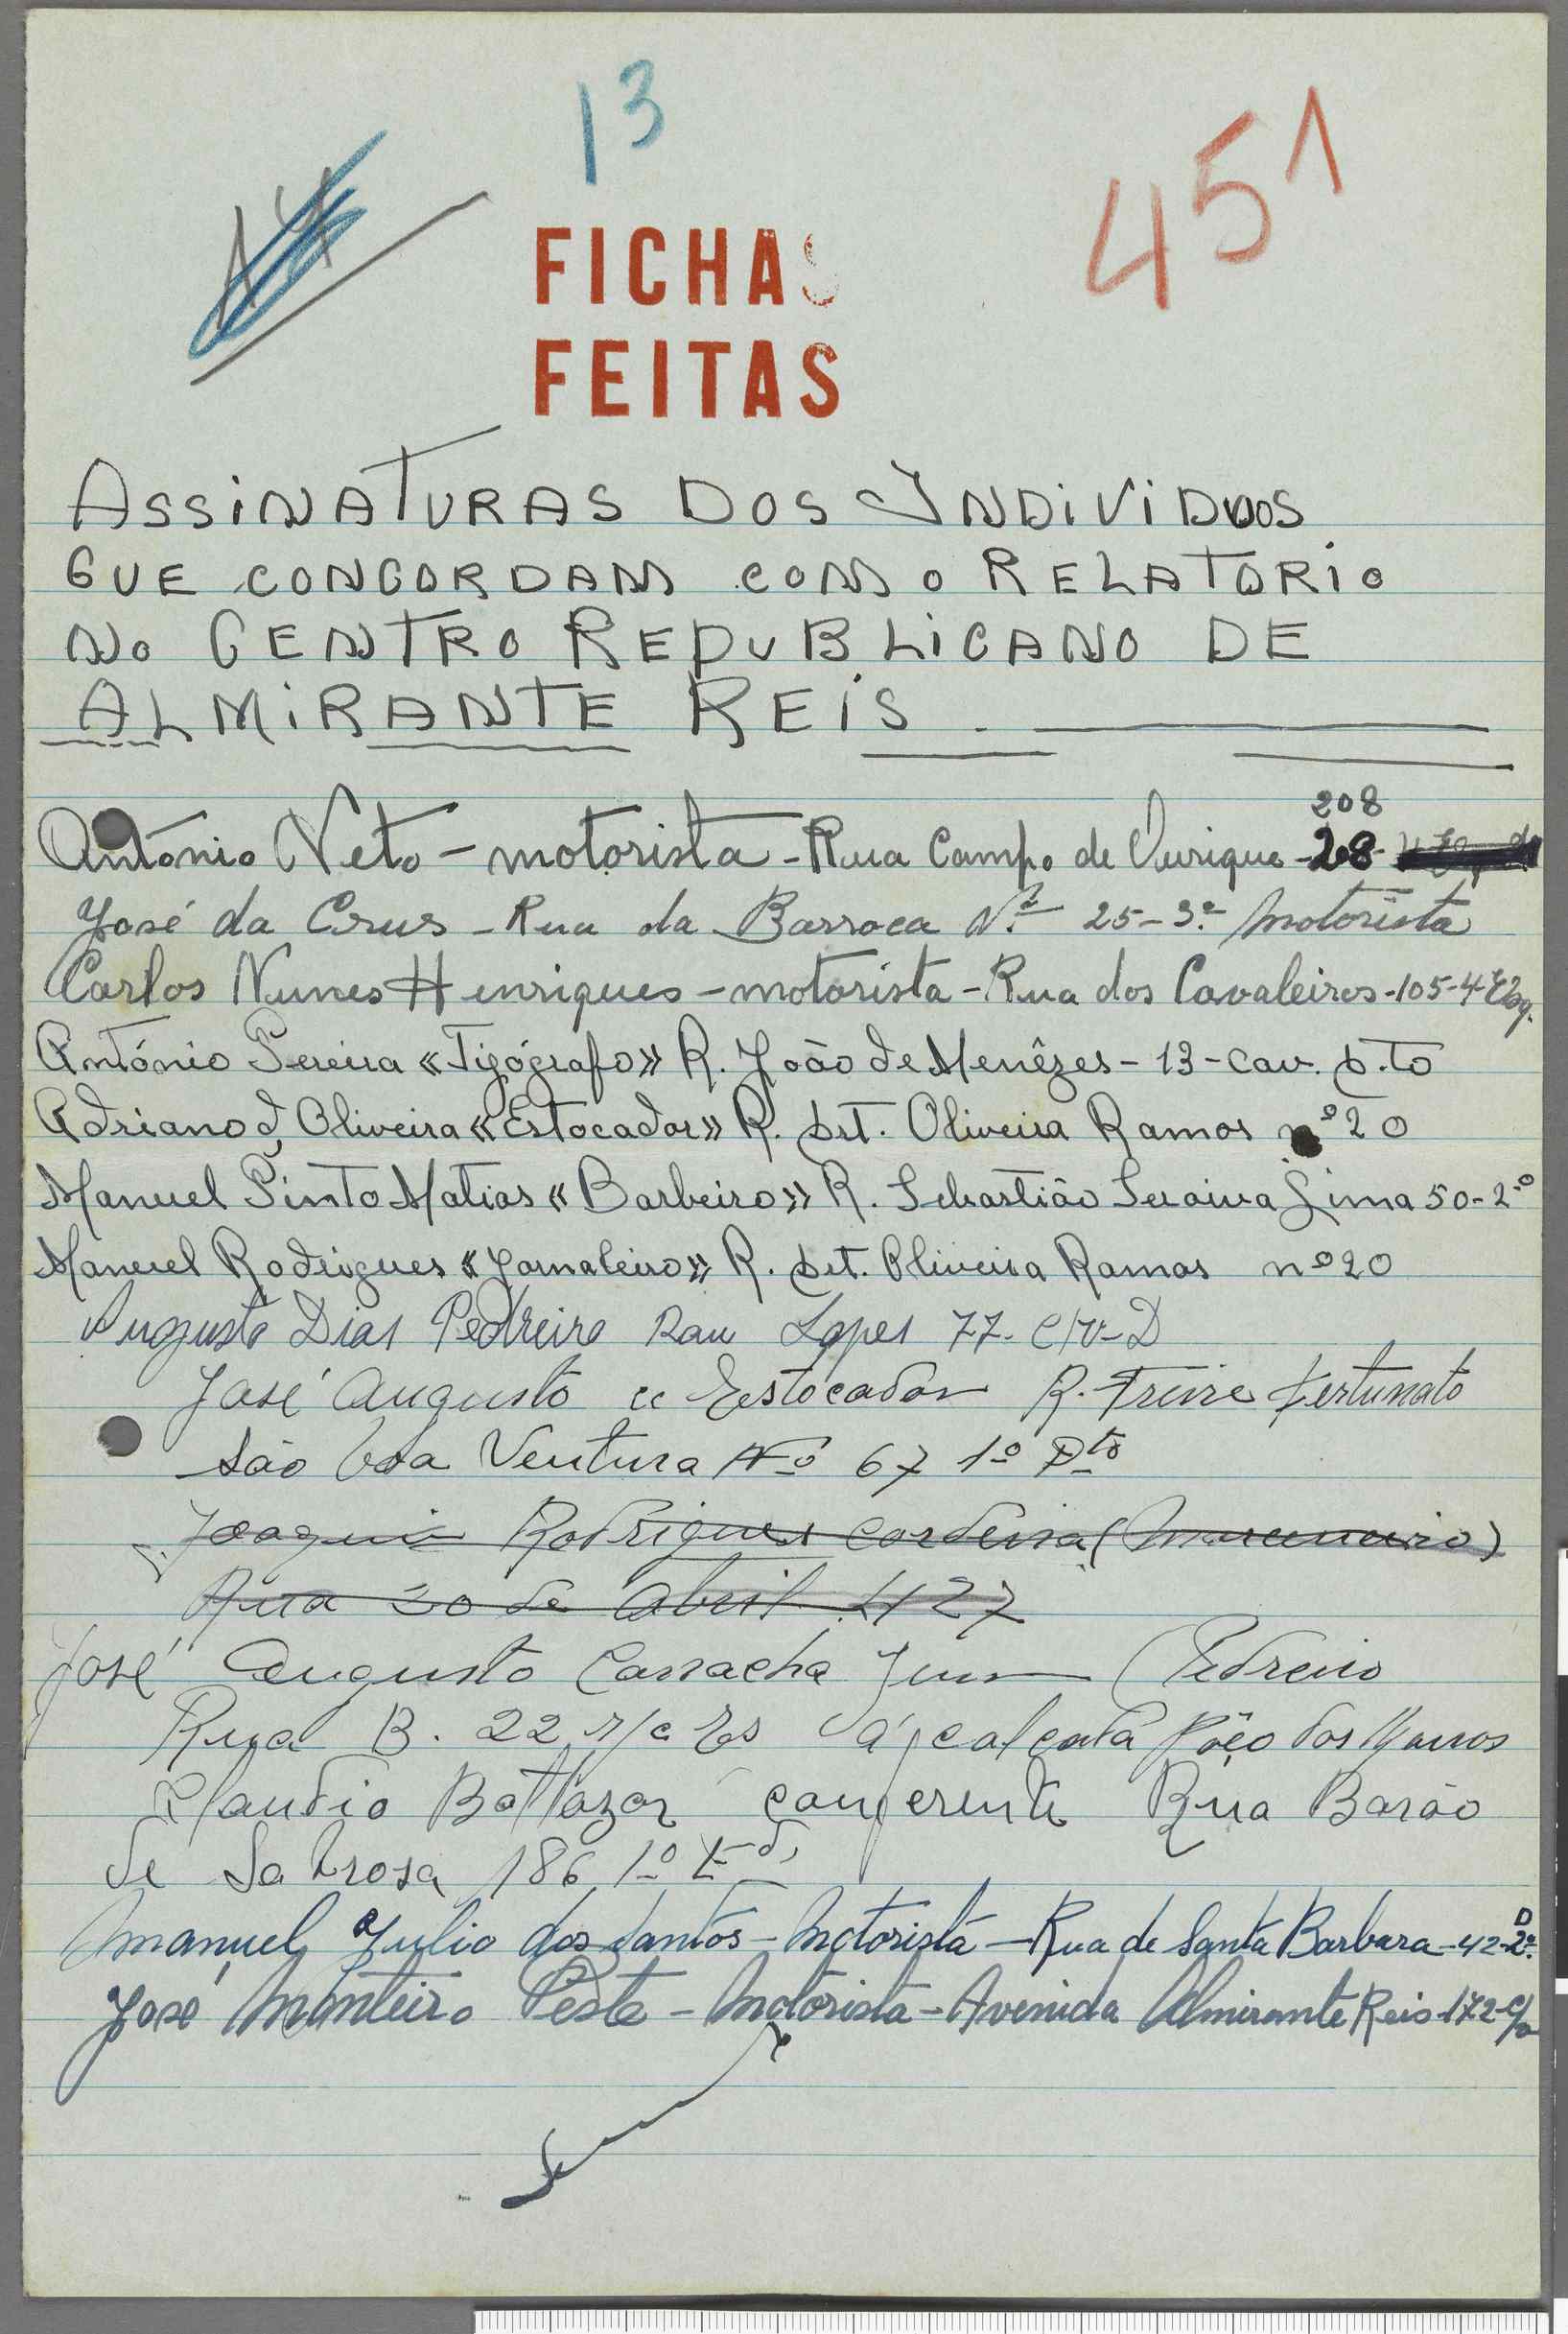 13
451
FICHAS
FEITAS
ASSINATURAS DOS INDIVIDUOS
QUE CONCORDAM COM O RELATORIO
NO CENTRO REPUBLICANO DE
ALMIRANTE REIS.
208
António Neto - motorista - Rua Campo de Ourique - 28
José da Crus - Rua da Barroca Nº 25-3º Motorista
Carlos Nunes Henriques - motorista - Rua dos Cavaleiros - 105-4º Esq.
António Pereira «Tipógrafo» R. João de Menêzes - 13 - cav. D.to
Adriano d' Oliveira «Estocador» R. Srt. Oliveira Ramos nº 20
Manuel Pinto Matias «Barbeiro» R. Sebastião Seraiva Lima 50-2º
Manuel Rodrigues «Jornaleiro» R. Srt. Oliveira Ramos nº 20
Augusto Dias Pedreiro Rau Lopes 77- C/v-D
José Augusto «Estocador R. Freire Fertunato
São Boa Ventura Nº 67 1º Dto
Joaquim Rodrigues Cordeira (Marceneiro)
Rua 20 de Abril 127
José Augusto Carracha Junr (Pedreiro
Rua B. 22 r/c Es á calçada Pôço dos Mouros
Claudio Baltazar conferente Rua Barão
de Sabrosa 186 1º Ed
Manuel Julio dos Santos - Motorista - Rua de Santa Barbara - 42-2º D
José Monteiro Peste - Motorista - Avenida Almirante Reis - 172-c/v